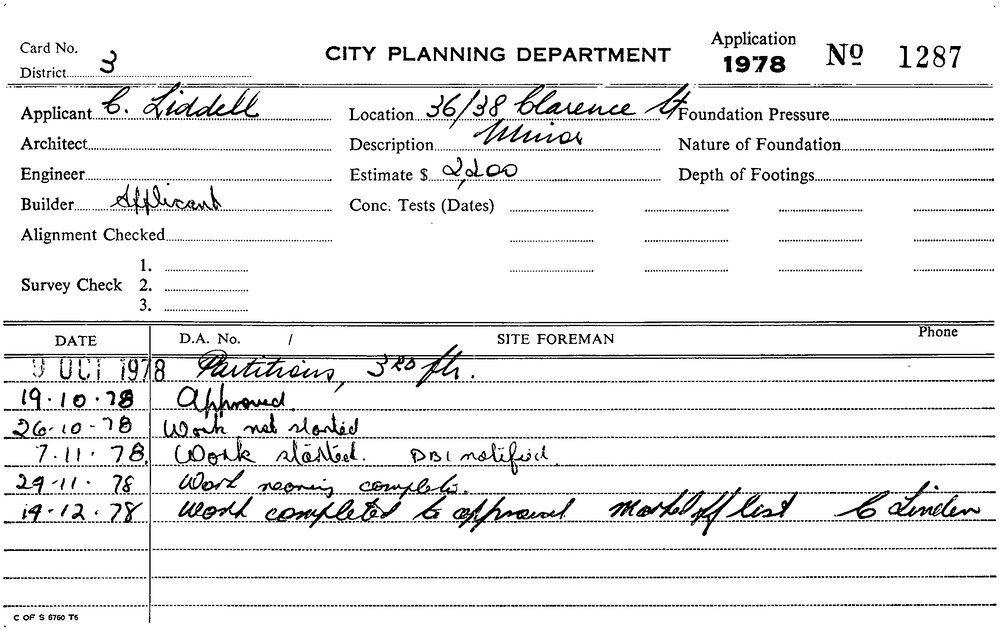 Card No. CITY PLANNING DEPARTMENT Application No 1287
District 3 1978
Applicant C. Liddell Location 36/38 Clarence St Foundation Pressure
Architect Description Minor Nature of Foundation
Engineer Estimate $ 2,200 Depth of Footings
Builder Applicant Conc. Tests (Dates)
Alignment Checked
1.
Survey Check 2.
3.
DATE D.A. No. / SITE FOREMAN Phone
9 OCT 1978 Partitions, 3RD flr.
19.10.78 Approved.
26-10-78 Work not started
7.11.78. Work started. DBI notified.
29-11.78 Work nearing complete.
19.12.78 Work completed to approval Marked off list C Linden
C OF S 6760 T6